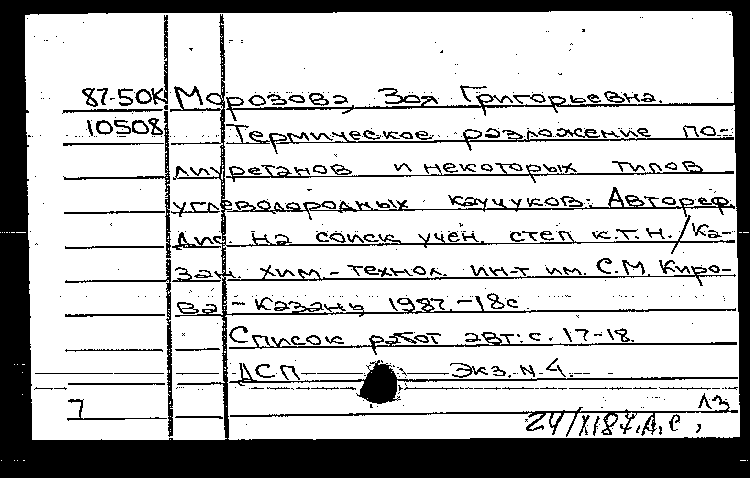 87-50К Морозова, Зоя Григорьевна.
10508 Термическое разложение по-
лиуретанов и некоторых типов
углеводородных каучуков: Автореф.
дис. на соиск. учен. степ к.т.н. / Ка-
зан. хим.-технол. ин-т им. С.М. Киро-
ва - Казань, 1987. - 18с.
Список работ авт.: с. 17-18.
ДСП Экз. N 4.
7 13
24/XI87.А.С,